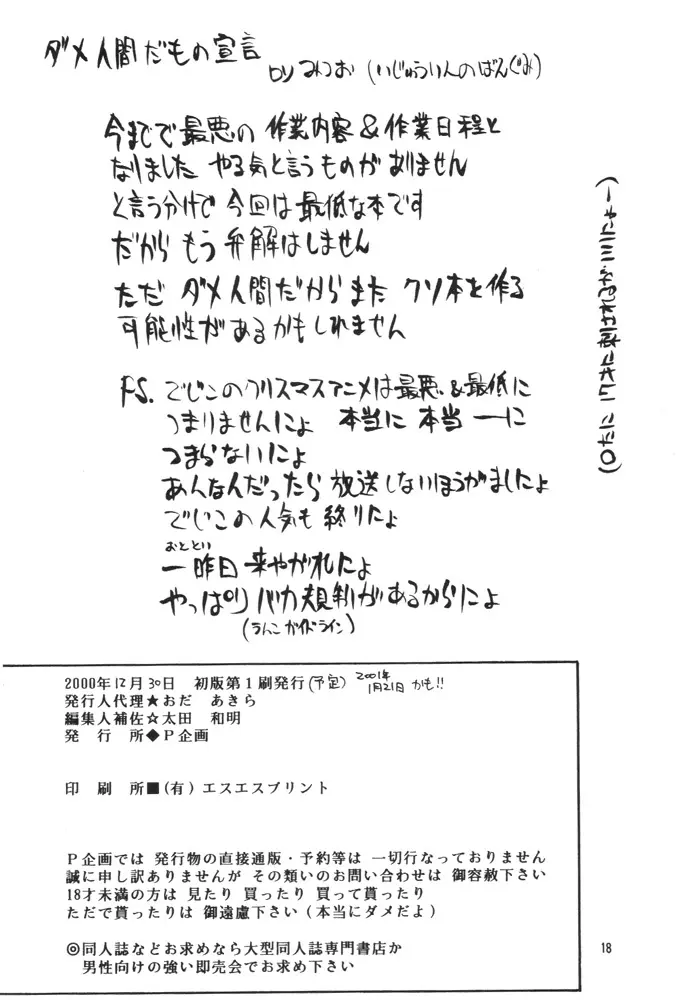 ダメ人間だもの宣言
by みつお (いじゅういんのばんぐみ)
今までで最悪の作業内容&作業日程と
なりました やる気と言うものがありません
と言う分けで 今回は最低な本です
だから もう弁解はしません
ただ ダメ人間だから また クソ本を作る
可能性があるかもしれません
P.S. でじこのクリスマスアニメは最悪&最低に
つまりませんにょ 本当に 本当ーーに
つまらないにょ
あんなんだったら 放送しないほうがましにょ
でじこの人気も 終りにょ
おととい
一昨日 来やがれにょ
やっぱり バカ規制があるからにょ
(うんこガイドライン)
2000年12月30日 初版第1刷発行(予定) 2001年
1月21日 かも!!
発行人代理★おだ あきら
編集人補佐☆太田 和明
発 行 所◆P企画
印 刷 所■(有)エスエスプリント
P企画では 発行物の直接通版・予約等は 一切行なっておりません
誠に申し訳ありませんが その類いのお問い合わせは 御容赦下さい
18才未満の方は 見たり 買ったり 買って貰ったり
ただで貰ったりは 御遠慮下さい(本当にダメだよ)
◎同人誌などお求めなら大型同人誌専門書店か
男性向けの強い即売会でお求め下さい
18